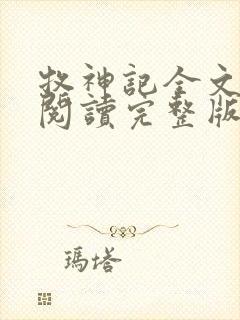 牧神記全文
閱讀完整版
瑪塔